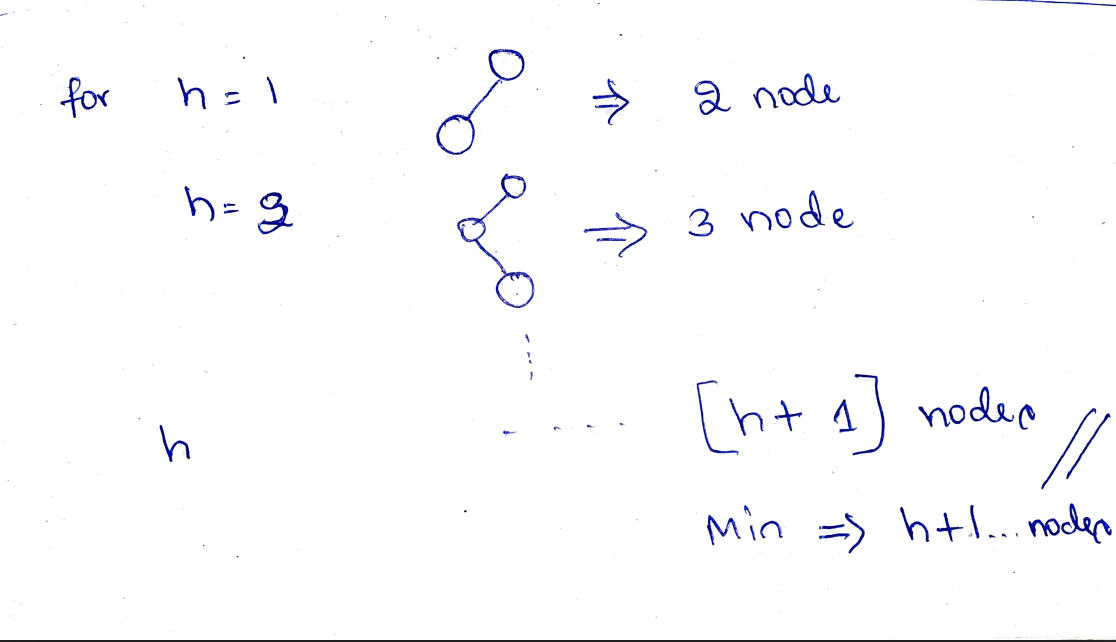 for h = 1 ⇒ 2 node
h = 2 ⇒ 3 node
h - - - - [h + 1] nodes //
Min ⇒ h+1... nodes